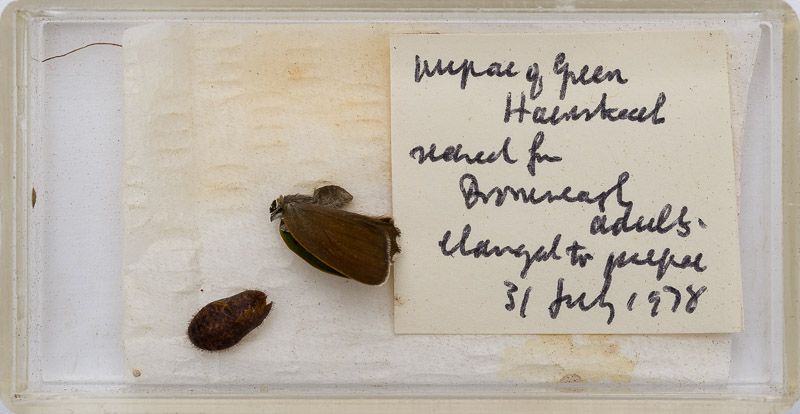 pupae of Green
Hairstreak
reared from
adults.
changed to pupae
31 July 1978